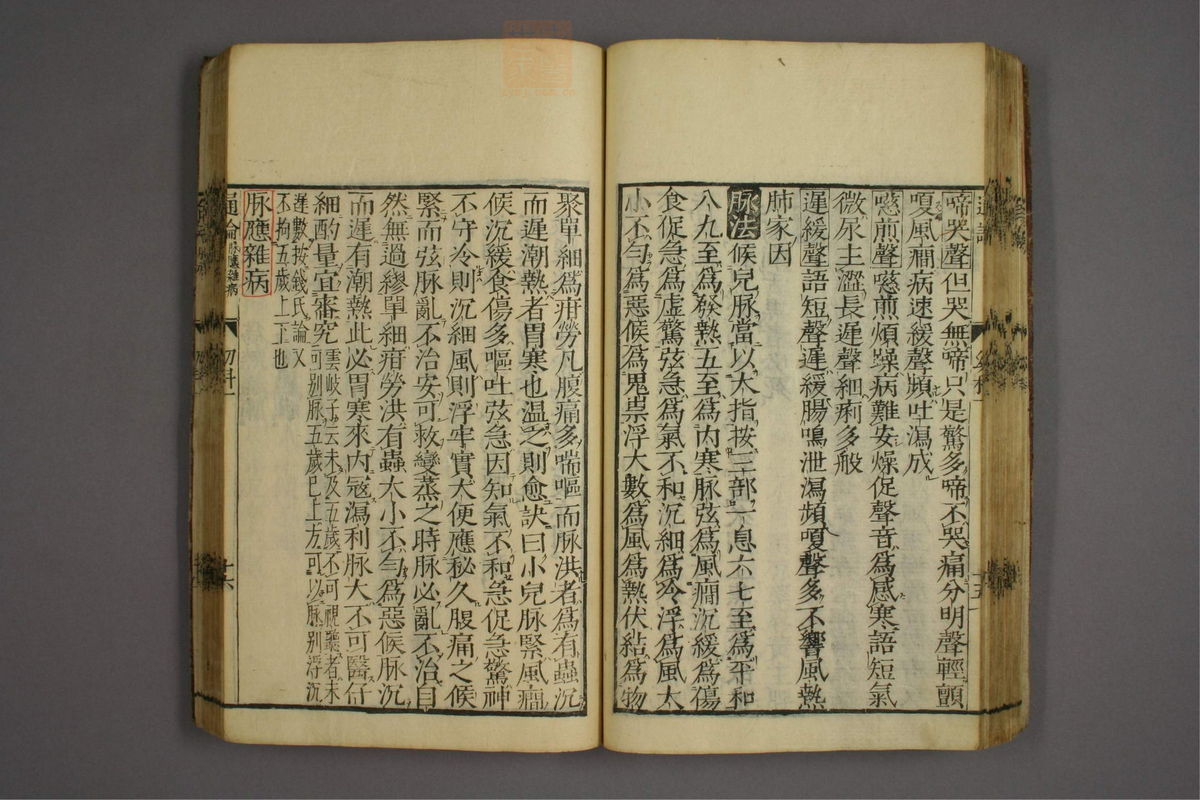 啼哭聲但哭無啼只是驚多啼不哭痛分明聲輕顫
嗄風癎病速緩聲頻吐瀉成
噫煎聲噫煎煩躁病難安燥促聲音爲感寒語短氣
微尿主澀長遲聲細痢多般
遲緩聲語短聲遲緩腸鳴泄瀉頻嗄聲多不響風熱
肺家因
脉法候兒脉當以大指按三部一息六七至爲平和
八九至爲發熱五至爲内寒脉弦爲風癎沉緩爲傷
食促急爲虚驚弦急爲氣不和沉細爲冷浮爲風大
小不勻爲惡候爲鬼祟浮大數爲風爲熱伏結爲物
聚單細爲疳勞凡腹痛多喘嘔而脉洪者爲有蟲沉
而遲潮熱者胃寒也温之則愈訣曰小兒脉緊風癎
候沉緩食傷多嘔吐弦急因知氣不和急促急驚神
不守冷則沉細風則浮牢實大便應秘久腹痛之候
緊而弦脉亂不治安可救變蒸之時脉必亂不治自
然無過繆單細疳勞洪有蟲大小不勻爲惡候脉沉
而遲有潮熱此必胃寒來内寇瀉利脉大不可醫仔
細酌量宜審究雲岐子云未及五歲不可視聽者未
可别脉五歲已上方可以脉别浮沉
遲數按錢氏論又
不拘五歲上下也
脉應雜病
通論
幼科
十六